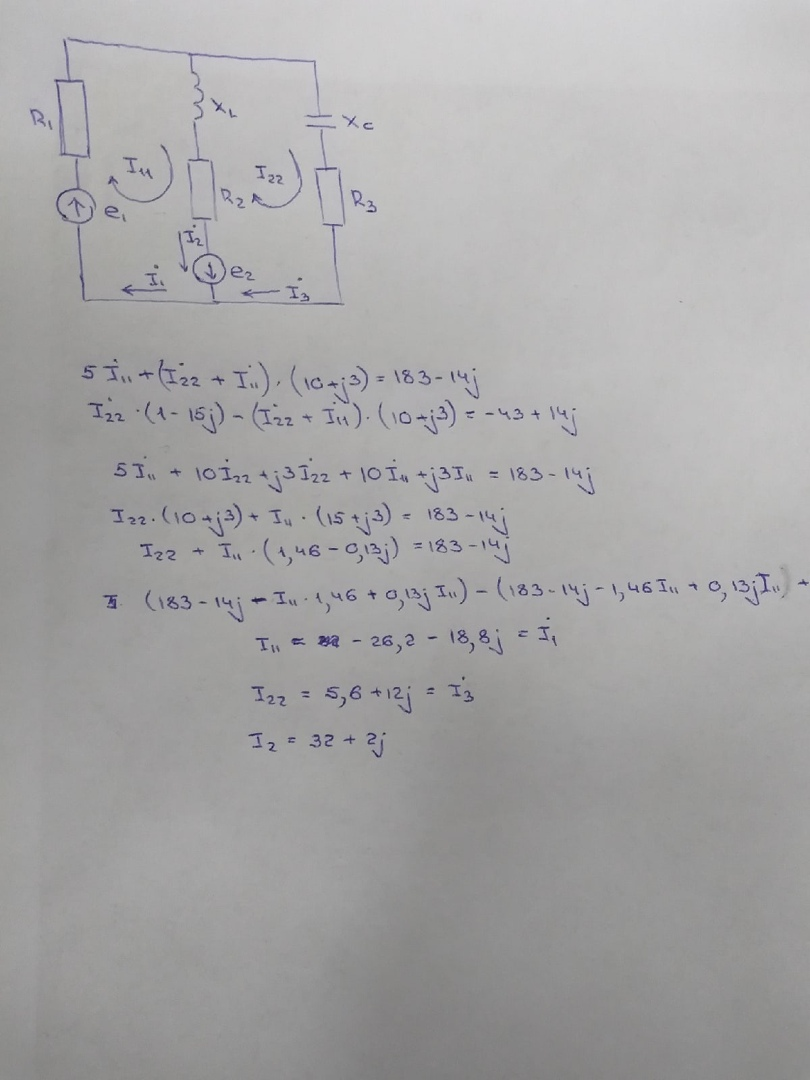 R₁
X_L
X_c
I₁₁
I₂₂
R₂
R₃
e₁
İ₂
e₂
İ₁
İ₃
5İ₁₁ + (İ₂₂ + İ₁₁) · (10+j3) = 183 - 14j
İ₂₂ · (1 - 15j) - (İ₂₂ + İ₁₁) · (10+j3) = -43 + 14j
5İ₁₁ + 10İ₂₂ + j3İ₂₂ + 10İ₁₁ + j3I₁₁ = 183 - 14j
I₂₂ · (10+j3) + I₁₁ · (15+j3) = 183 - 14j
I₂₂ + I₁₁ · (1,46 - 0,13j) = 183 - 14j
(183 - 14j - I₁₁ · 1,46 + 0,13j I₁₁) - (183 - 14j - 1,46 I₁₁ + 0,13j I₁₁) +
I₁₁ = - 26,2 - 18,8j = İ₁
I₂₂ = 5,6 + 12j = İ₃
I₂ = 32 + 2j